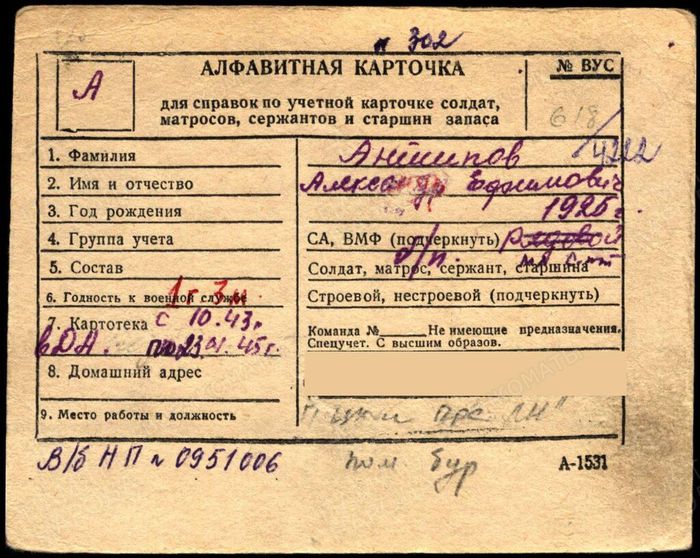 № 302
АЛФАВИТНАЯ КАРТОЧКА
№ ВУС
А
для справок по учетной карточке солдат,
матросов, сержантов и старшин запаса
618/4212
1. Фамилия Антипов
2. Имя и отчество Александр Ефимович
3. Год рождения 1925 г.
4. Группа учета СА, ВМФ (подчеркнуть) рядовой
б/п.
5. Состав Солдат, матрос, сержант, старшина
6. Годность к военной службе Строевой, нестроевой (подчеркнуть)
1 г 3 м.
7. Картотека с 10.43г. Команда № Не имеющие предназначения.
Спецучет. С высшим образов.
по 23.01.45г.
8. Домашний адрес
9. Место работы и должность
В/б НП № 0951006 пом бур А-1531